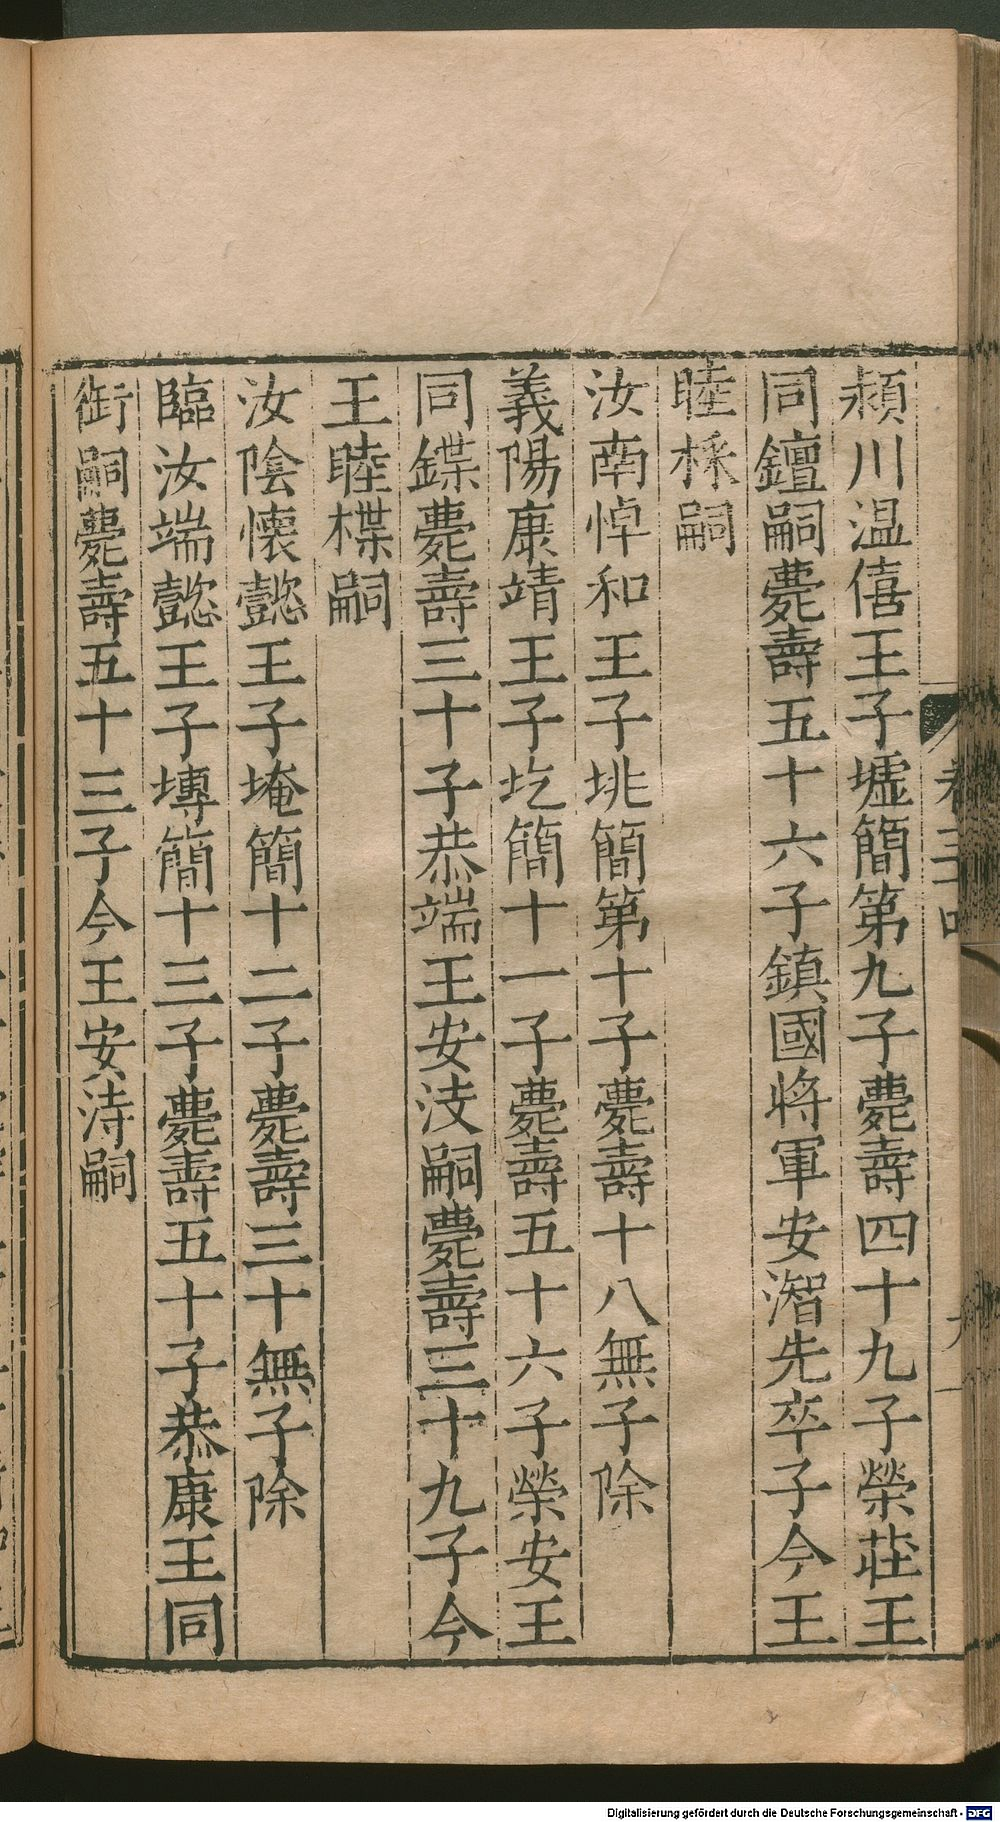 潁川温僖王子墟簡第九子薨壽四十九子榮莊王
同鐺嗣薨壽五十六子鎮國將軍安潪先卒子今王
睦𣓀嗣
汝南悼和王子垗簡第十子薨壽十八無子除
義陽康靖王子圪簡十一子薨壽五十六子榮安王
同鍱薨壽三十子恭端王安汥嗣薨壽三十九子今
王睦楪嗣
汝陰懷懿王子埯簡十二子薨壽三十無子除
臨汝端懿王子塼簡十三子薨壽五十子恭康王同
銜嗣薨壽五十三子今王安洔嗣
Digitalisierung gefördert durch die Deutsche Forschungsgemeinschaft - DFG